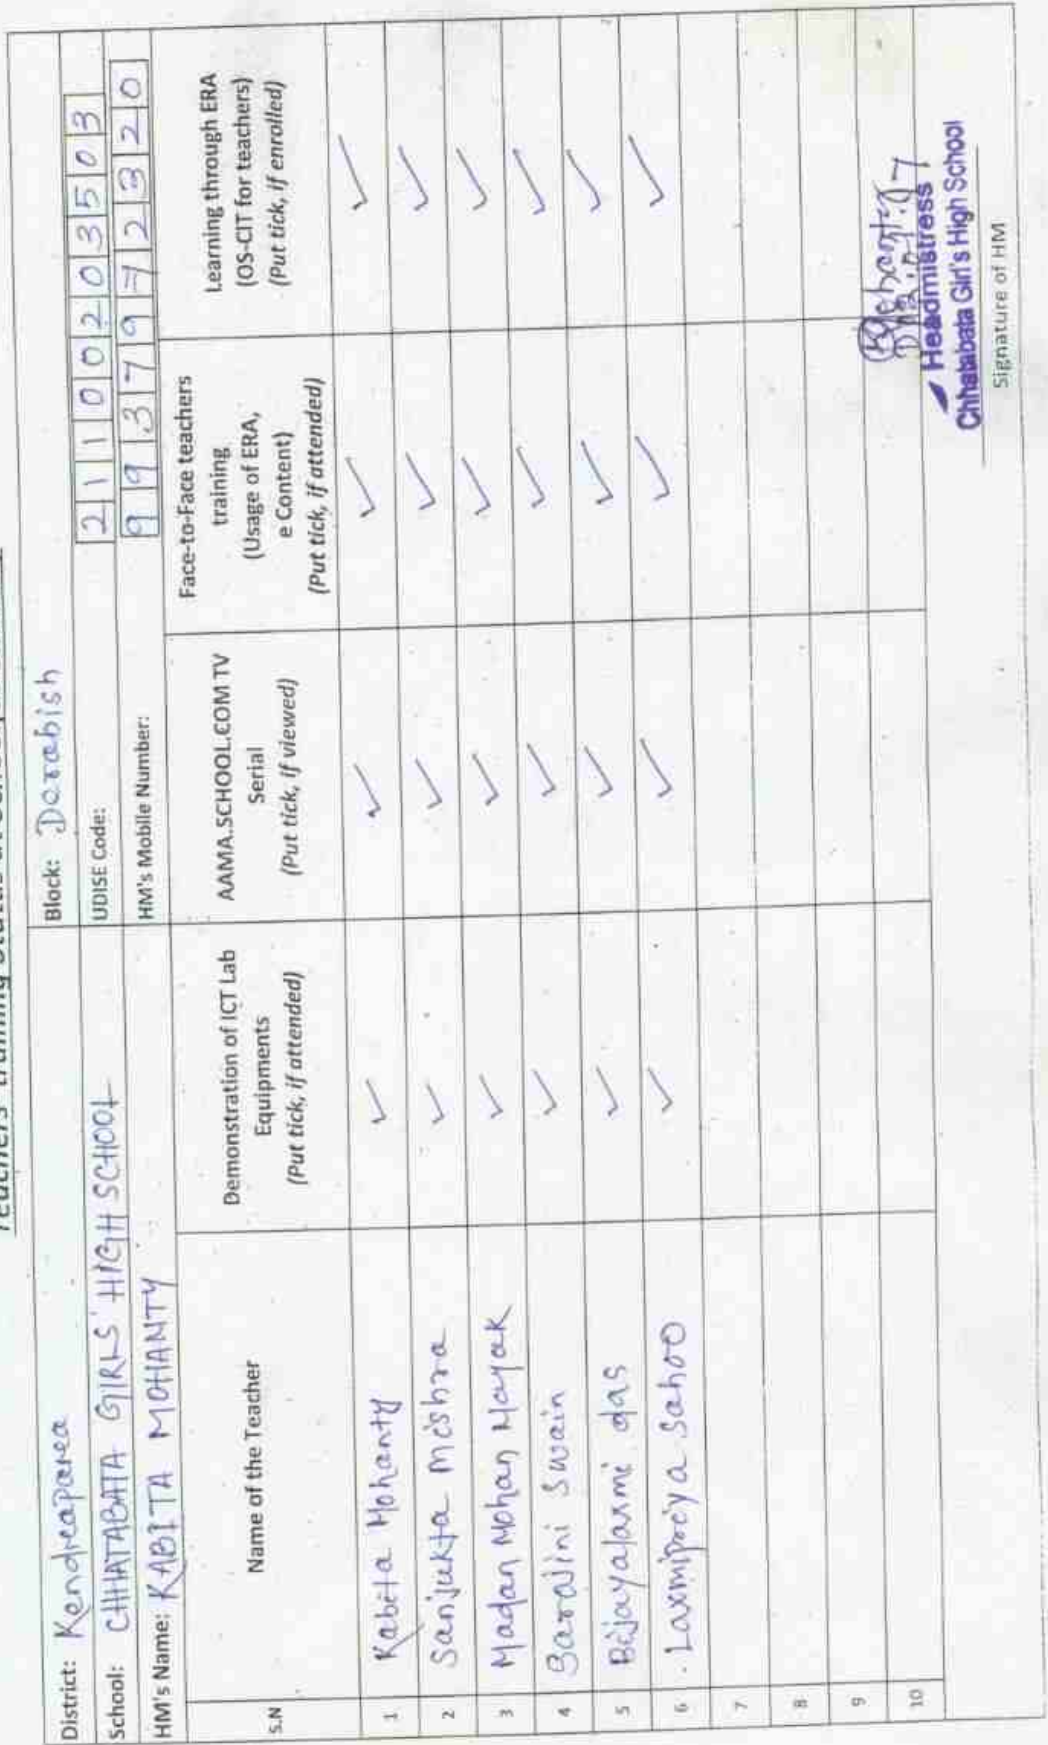 Teachers' training Status at School
District: Kendrapara Block: Derabish
School: CHHATABATA GIRLS' HIGH SCHOOL UDISE Code: 21100203503
HM's Name: KABITA MOHANTY HM's Mobile Number: 9937972320
S.N Name of the Teacher Demonstration of ICT Lab Equipments (Put tick, if attended) AAMA.SCHOOL.COM TV Serial (Put tick, if viewed) Face-to-Face teachers training (Usage of ERA, e Content) (Put tick, if attended) Learning through ERA (OS-CIT for teachers) (Put tick, if enrolled)
1 Kabita Mohanty ✓ ✓ ✓ ✓
2 Sanjukta Mishra ✓ ✓ ✓ ✓
3 Madan Mohan Nayak ✓ ✓ ✓ ✓
4 Sarojini Swain ✓ ✓ ✓ ✓
5 Bijayalaxmi das ✓ ✓ ✓ ✓
6 Laxmipriya Sahoo ✓ ✓ ✓ ✓
7
8
9
10
Headmistress
Chhatabata Girl's High School
Signature of HM